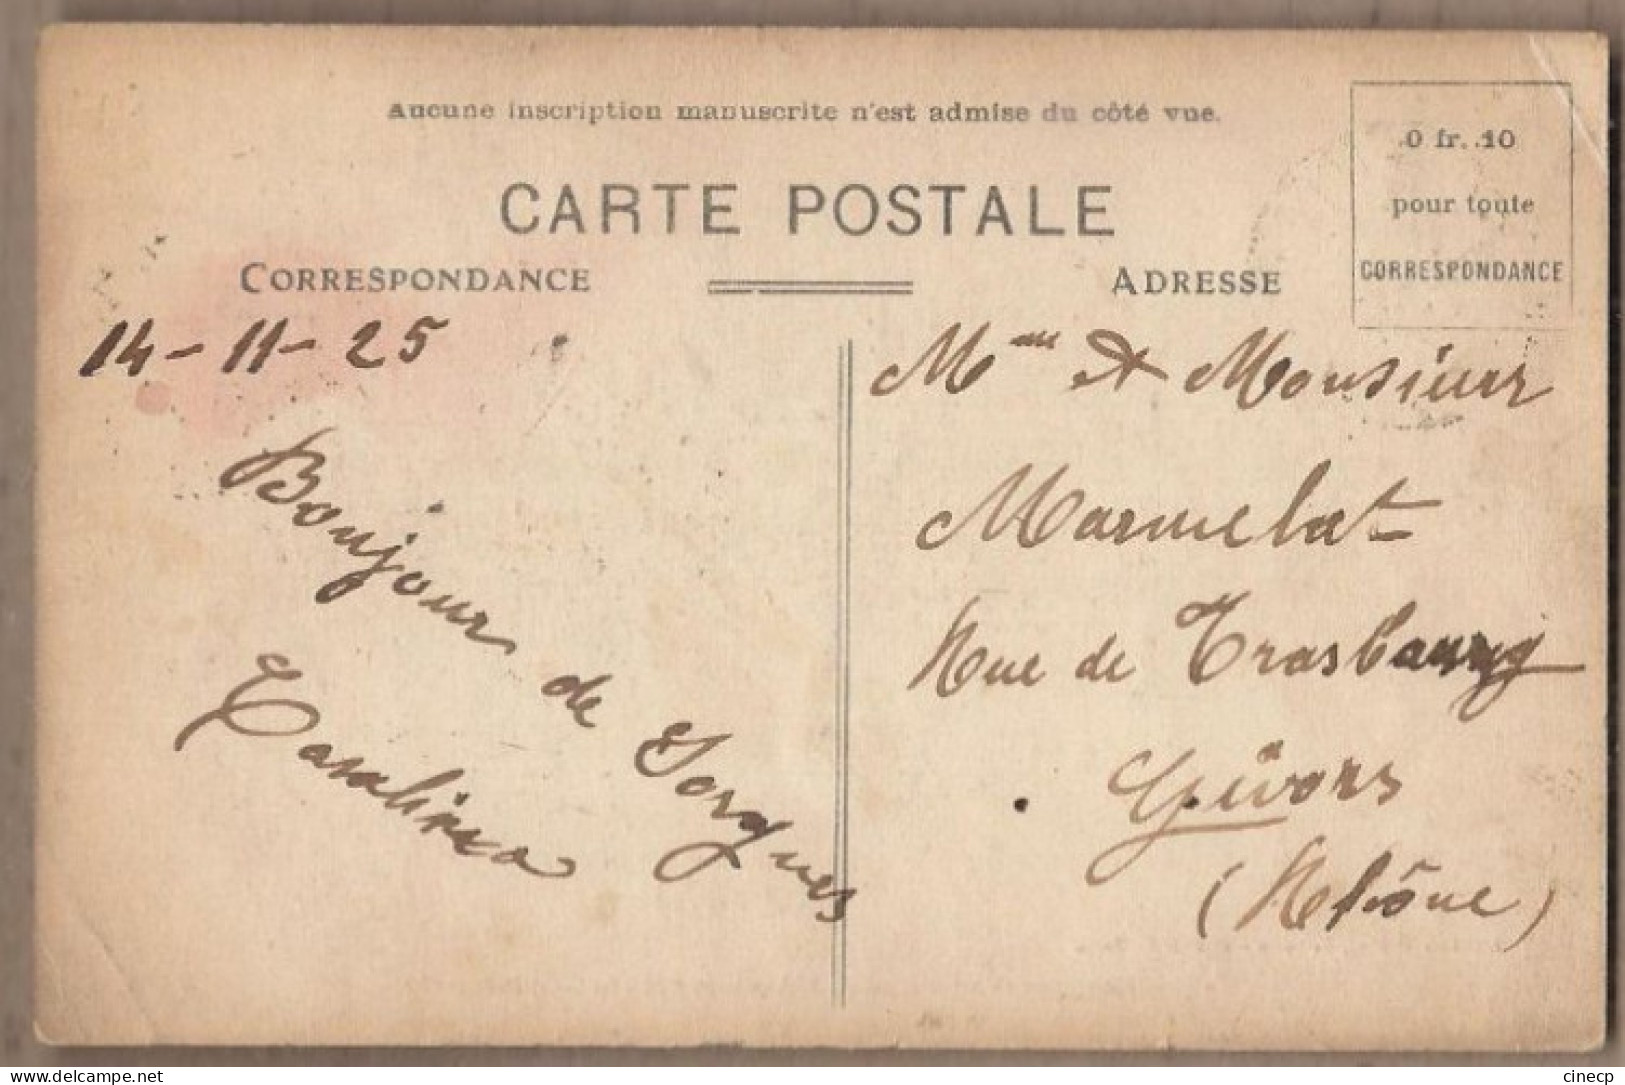 Aucune inscription manuscrite n'est admise du côté vue.
0 fr. 10
pour toute
CORRESPONDANCE
CARTE POSTALE
CORRESPONDANCE
ADRESSE
14-11-25
Bonjour de Sorgues
Mme & Monsieur
Marmelat
Rue de Trasbourg
Givors
(Rhône)
cinecp